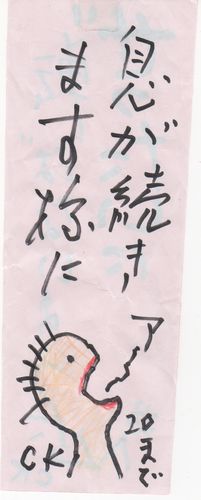 息が続き
ます様に
アー
20まで
CK